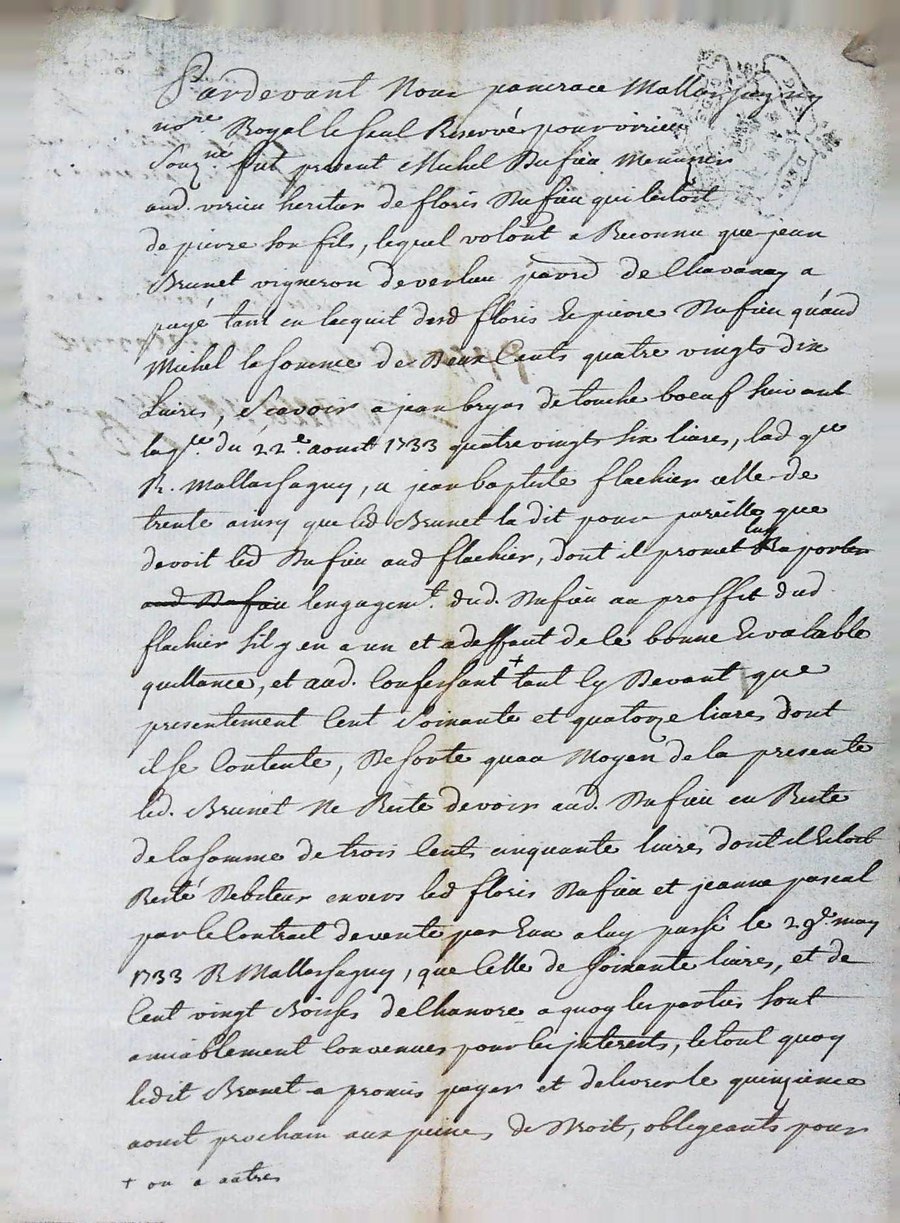 Pardevant Nous pancrace Mallassagny
no.re Royal le seul Reservé pour virieu
Souz.né fut present Michel Dufieu Menuzier
aud. virieu heritier de floris Dufieu qui l'estoit
de pierre son fils, lequel volont a Reconnu que jean
Brunet vigneron de verlieu parr.d de Chavanay a
payé tant en l'acquit desd floris Et pierre Dufieu qu'aud
Michel la somme de Deux Cents quatre vingts dix
Livres, Scavoir a jean bryas de touche boeuf suivant
la q.ce du 22.e aoust 1733 quatre vingts six livres, lad q.ce
R. Mallassagny, a jean baptiste flachier celle de
trente ainsy que led Brunet la dit pour pareille que
devoit led Dufieu aud flachier, dont il promet luy Raporter
aud Dufieu l'engagem.t dud. Dufieu au proffit dud
flachier s'il y en a un et a deffaut de ce bonne Et valable
quittance, et aud. Confessant + tant Cy Devant que
presentement Cent Soixante et quatorze livres dont
il se Contente, De sorte quau Moyen de la presente
led. Brunet Ne Reste devoir aud. Dufieu en Reste
de la somme de trois Cents cinquante livres dont il Estoit
Resté Debiteur envers led floris Dufieu et jeanne pascal
par le Contrat de vente par Eux a luy passé le 29.e may
1733 R Mallassagny, que Celle de soixante livres, et de
Cent vingt de Chanvre a quoy les parties sont
amiablement Convenues pour les interests, le tout quoy
ledit Brunet a promis payer et delivrer le quinzieme
aoust prochain aux peines de Droit, obligeants pour
+ ou a autres